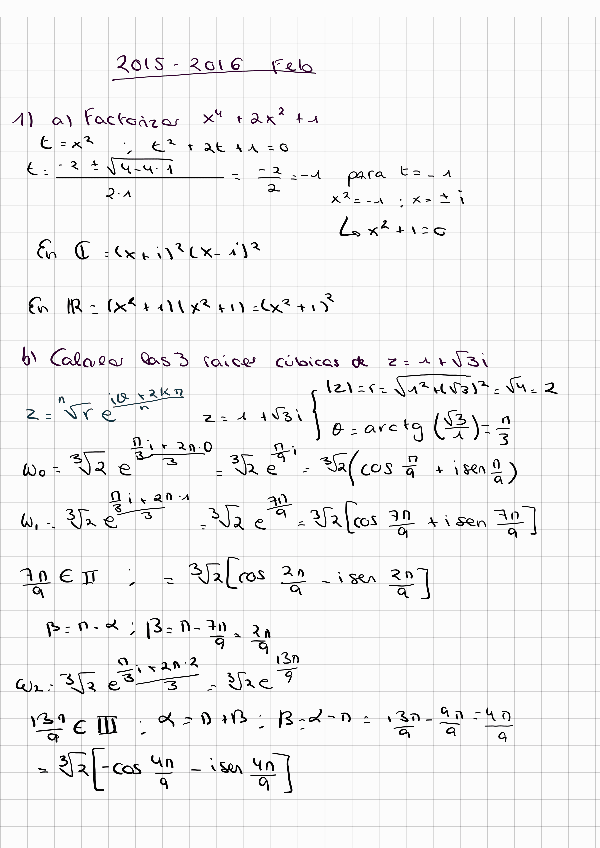 2015 - 2016 Feb
1) a) Factorizar x⁴ + 2x² + 1
t = x² ; t² + 2t + 1 = 0
t = (-2 ± √(4-4·1))/(2·1) = -2/2 = -1 para t = -1
x² = -1 ; x = ± i
↳ x² + 1 = 0
En ℂ = (x+i)²(x-i)²
En ℝ = (x²+1)(x²+1) = (x²+1)²
b) Calcular las 3 raices cúbicas de z = 1 + √3i
z = ⁿ√r e^((iθ + 2kπ)/n) z = 1 + √3i { |z| = r = √(1²+(√3)²) = √4 = 2
θ = arctg (√3/1) = π/3
ω₀ = ³√2 e^((π/3 i + 2π·0)/3) = ³√2 e^(π/9 i) = ³√2 (cos π/9 + i sen π/9)
ω₁ = ³√2 e^((π/3 i + 2π·1)/3) = ³√2 e^(7π/9) = ³√2 [cos 7π/9 + i sen 7π/9]
7π/9 ∈ II ; = ³√2 [cos 2π/9 - i sen 2π/9]
β = π - α ; β = π - 7π/9 = 2π/9
ω₂ = ³√2 e^((π/3 i + 2π·2)/3) = ³√2 e^(13π/9)
13π/9 ∈ III ; α = π + β ; β = α - π = 13π/9 - 9π/9 = 4π/9
= ³√2 [-cos 4π/9 - i sen 4π/9]